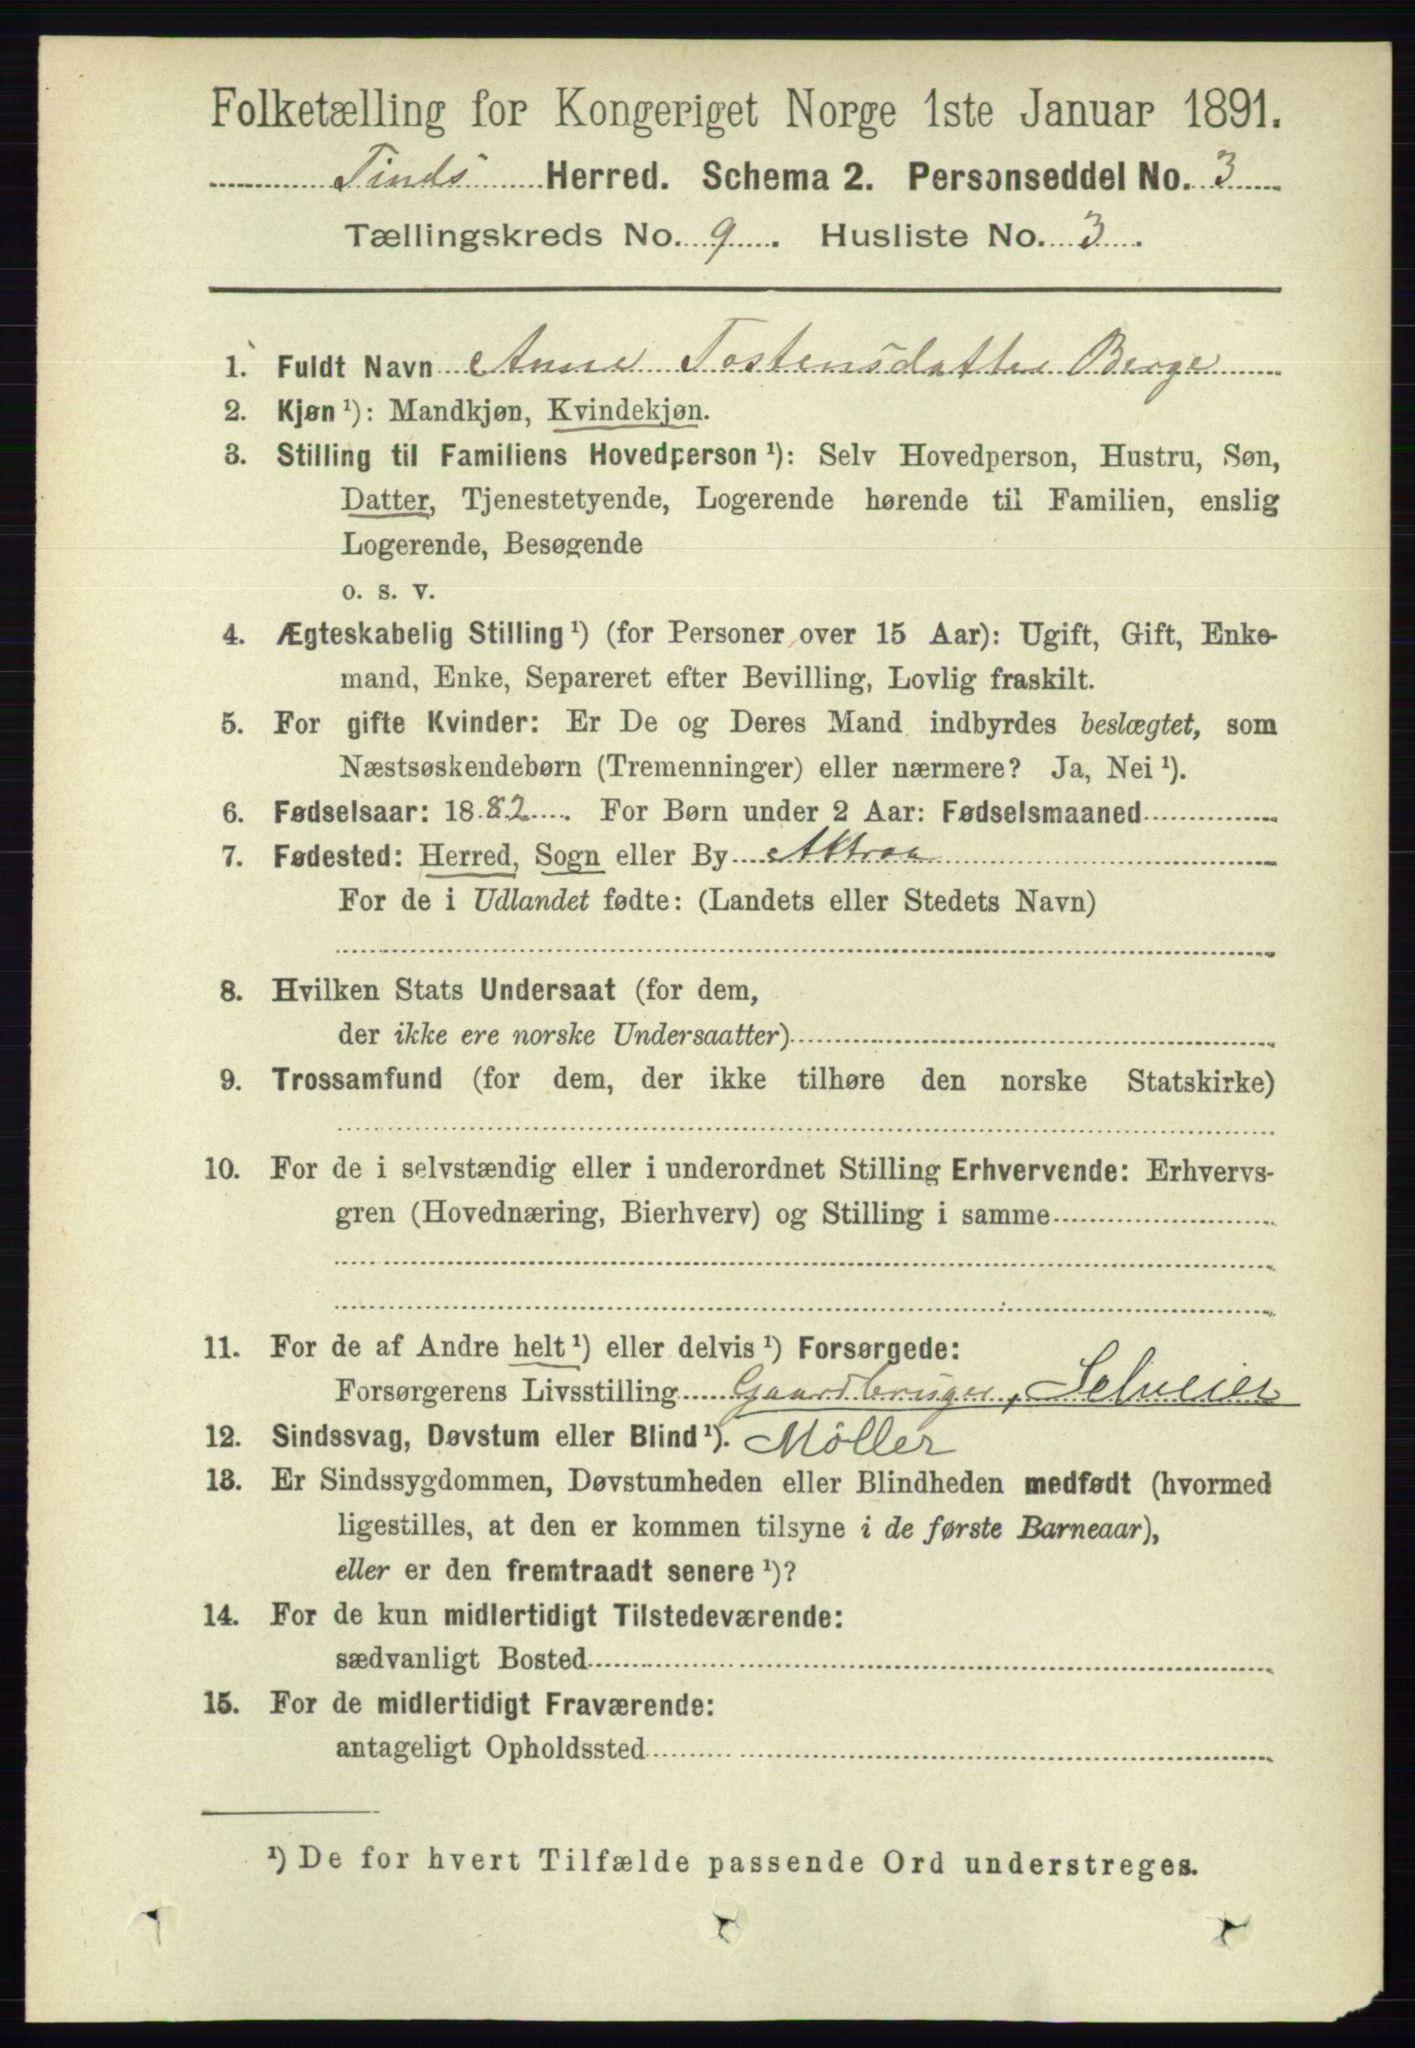 Folketælling for Kongeriget Norge 1ste Januar 1891.
Tinds Herred. Schema 2. Personseddel No. 3
Tællingskreds No. 9. Husliste No. 3.
1. Fuldt Navn Anne Tostensdatter Berge
2. Kjøn ¹): Mandkjøn, Kvindekjøn.
3. Stilling til Familiens Hovedperson ¹): Selv Hovedperson, Hustru, Søn,
Datter, Tjenestetyende, Logerende hørende til Familien, enslig
Logerende, Besøgende
o. s. v.
4. Ægteskabelig Stilling ¹) (for Personer over 15 Aar): Ugift, Gift, Enke-
mand, Enke, Separeret efter Bevilling, Lovlig fraskilt.
5. For gifte Kvinder: Er De og Deres Mand indbyrdes beslægtet, som
Næstsøskendebørn (Tremenninger) eller nærmere? Ja, Nei ¹).
6. Fødselsaar: 1882. For Børn under 2 Aar: Fødselsmaaned
7. Fødested: Herred, Sogn eller By Attraa
For de i Udlandet fødte: (Landets eller Stedets Navn)
8. Hvilken Stats Undersaat (for dem,
der ikke ere norske Undersaatter)
9. Trossamfund (for dem, der ikke tilhøre den norske Statskirke)
10. For de i selvstændig eller i underordnet Stilling Erhvervende: Erhvervs-
gren (Hovednæring, Bierhverv) og Stilling i samme
11. For de af Andre helt ¹) eller delvis ¹) Forsørgede:
Forsørgerens Livsstilling Gaardbruger, Selveier
12. Sindssvag, Døvstum eller Blind ¹). Möller
13. Er Sindssygdommen, Døvstumheden eller Blindheden medfødt (hvormed
ligestilles, at den er kommen tilsyne i de første Barneaar),
eller er den fremtraadt senere ¹)?
14. For de kun midlertidigt Tilstedeværende:
sædvanligt Bosted
15. For de midlertidigt Fraværende:
antageligt Opholdssted
¹) De for hvert Tilfælde passende Ord understreges.